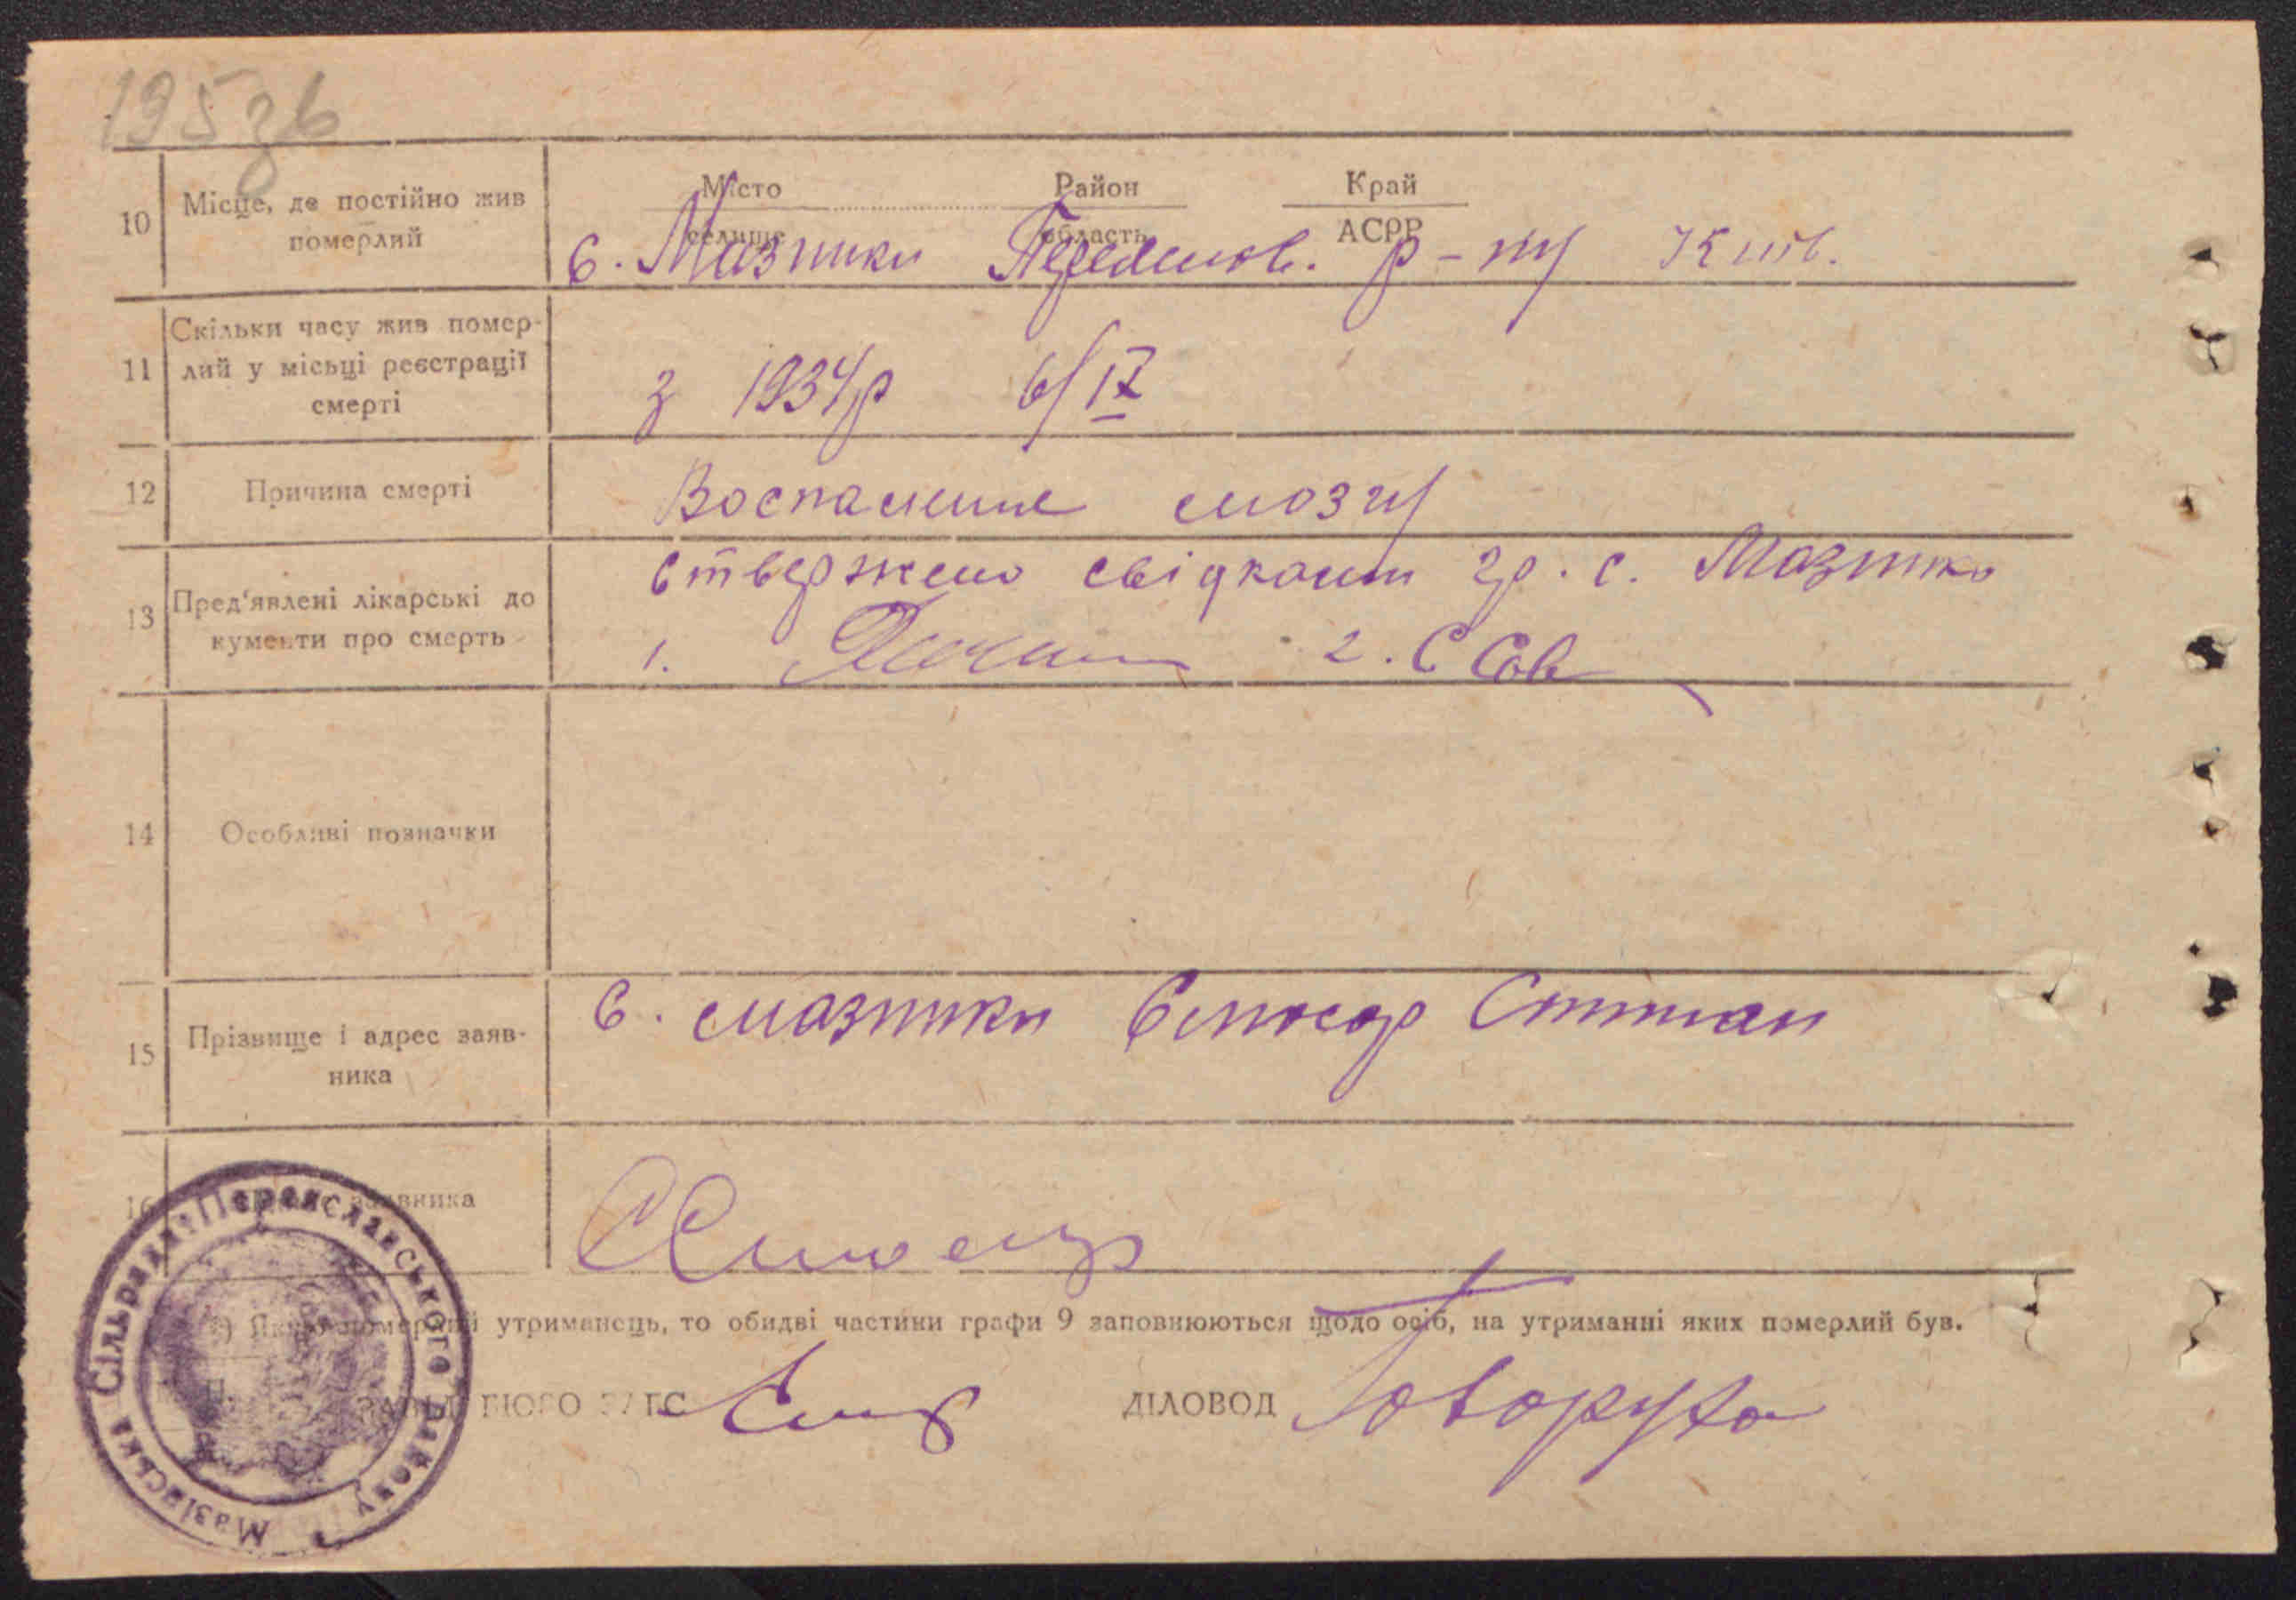 195зв
Місто Район Край
10 Місце, де постійно жив
померлий
селище область АСРР
с. Мазинки Переяслов. р-ну Київ.
11 Скільки часу жив помер-
лий у місьці реєстрації
смерті
з 1934/р 6/IV
12 Причина смерті
Воспаление мозгу
13 Пред'явлені лікарські до
кументи про смерть
Ствержено свідками гр. с. Мазинки
1. 2. С
14 Особливі позначки
15 Прізвище і адрес заяв-
ника
с. мазинки
16 заявника
1) Якщо померлий утриманець, то обидві частини графи 9 заповнюються щодо осіб, на утриманні яких померлий був.
БЮРО ЗАГС ДІЛОВОД Говоруха
Сільрада Переяславського району